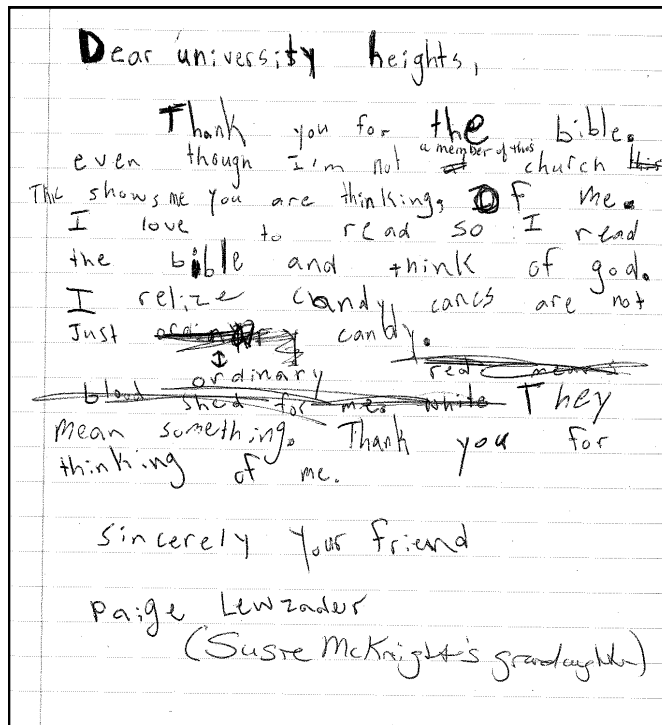 Dear university heights,
Thank you for the bible.
even though I'm not a member of this church this
This shows me you are thinking, Of me.
I love to read so I read
the bible and think of god.
I relize candy cancs are not
Just ordinary candy.
ordinary red means
blood shed for me. white They
mean something. Thank you for
thinking of me.
sincerely your friend
paige Lewzader
(Susie McKnight's grandaughter)